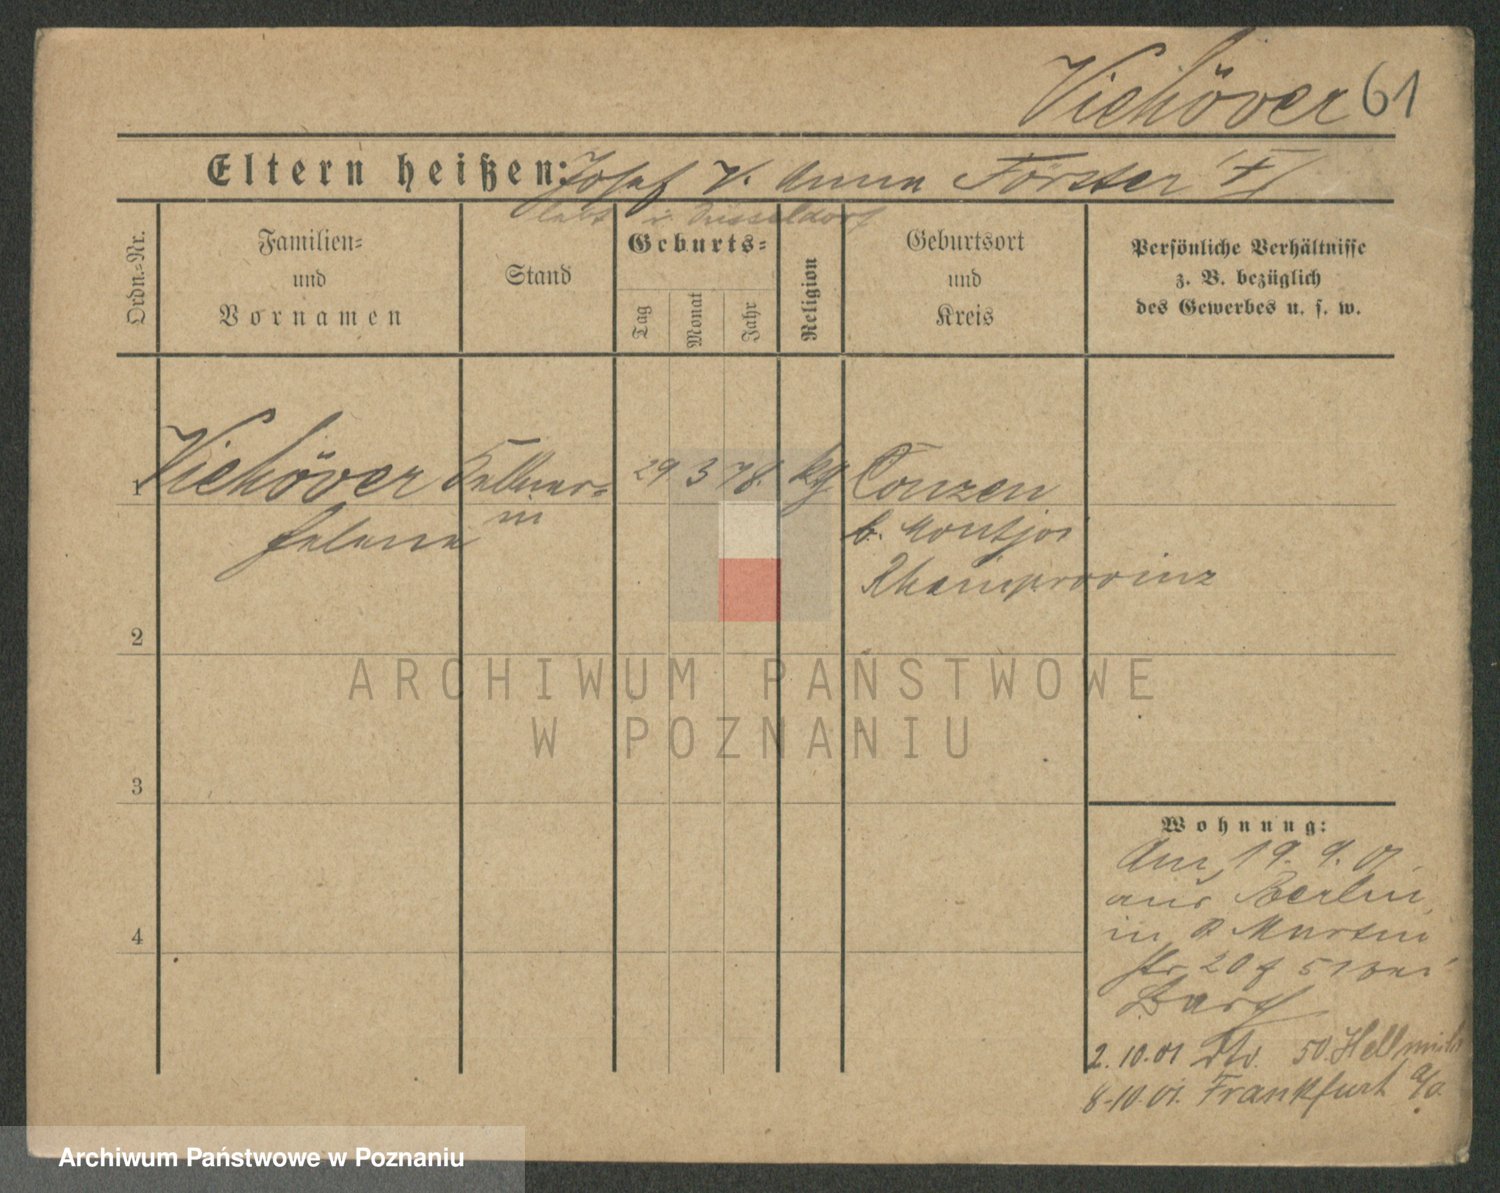 Viehöver 61
Eltern heißen: Josef V. Anna Förster
lebt in Düsseldorf
Ordn.-Nr.
Familien-
und
Vornamen
Stand
Geburts-
Tag
Monat
Jahr
Religion
Geburtsort
und
Kreis
Persönliche Verhältnisse
z. B. bezüglich
des Gewerbes u. s. w.
1 Viehöver Kellner- 29 3 78. kg Conzen
Helene in b. Montjoi
Rheinprovinz
2
3
4
Wohnung:
Am 19. 9. 01.
aus Berlin,
in St Martin
str 20 bei
2.10.01 dto. 50. Hellmich
8.10.01. Frankfurt a/O.
ARCHIWUM PAŃSTWOWE
W POZNANIU
Archiwum Państwowe w Poznaniu